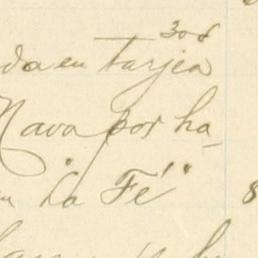 308
da en tarjea
Nava por ha_
en "La Fé" 8